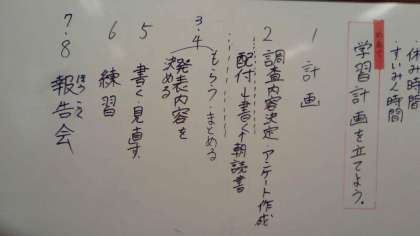 ・休み時間
・すいみん時間
めあて
学習計画を立てよう。
1 計画
2 調査内容決定 アンケート作成
配付→書く→朝読書
3・4 もらう・まとめる
発表内容を決める
5 書く・見直す
6 練習
7・8 報告会
ほうこく